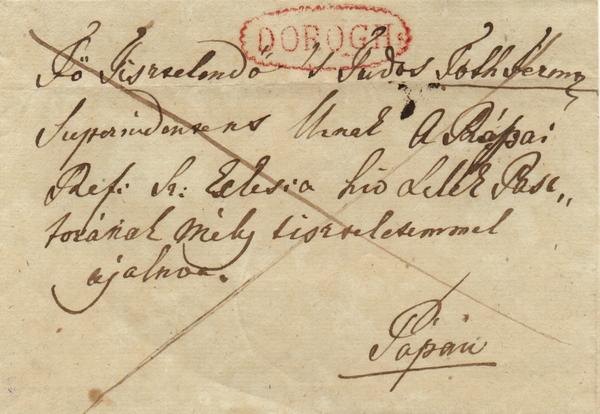 DOROGH
Fő Tisztelendő 's Tudos Tóth Ferenz
Superindensens Urnak A Pápai
Ref: Sz: Eclesia hív Lelék Pász„
torának mély tisztelettemmel
ajalnva.
Pápán